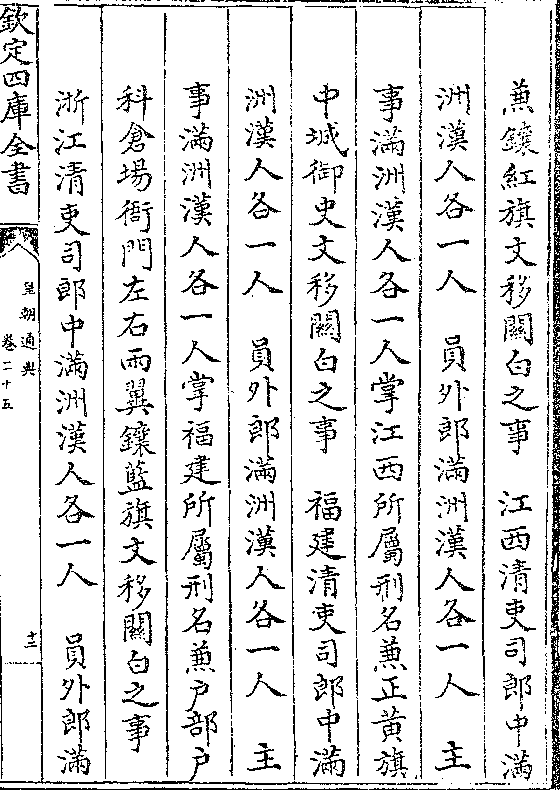 兼鑲紅旗文移關白之事　江西清吏司郎中滿
洲漢人各一人　員外郎滿洲漢人各一人　主
事滿洲漢人各一人掌江西所屬刑名兼正黃旗
中城御史文移關白之事　福建清吏司郎中滿
洲漢人各一人　員外郎滿洲漢人各一人　主
事滿洲漢人各一人掌福建所屬刑名兼户部户
科倉場衙門左右兩翼鑲藍旗文移關白之事
浙江清吏司郎中滿洲漢人各一人　員外郎滿
欽定四庫全書
皇朝通典
卷二十五
十三